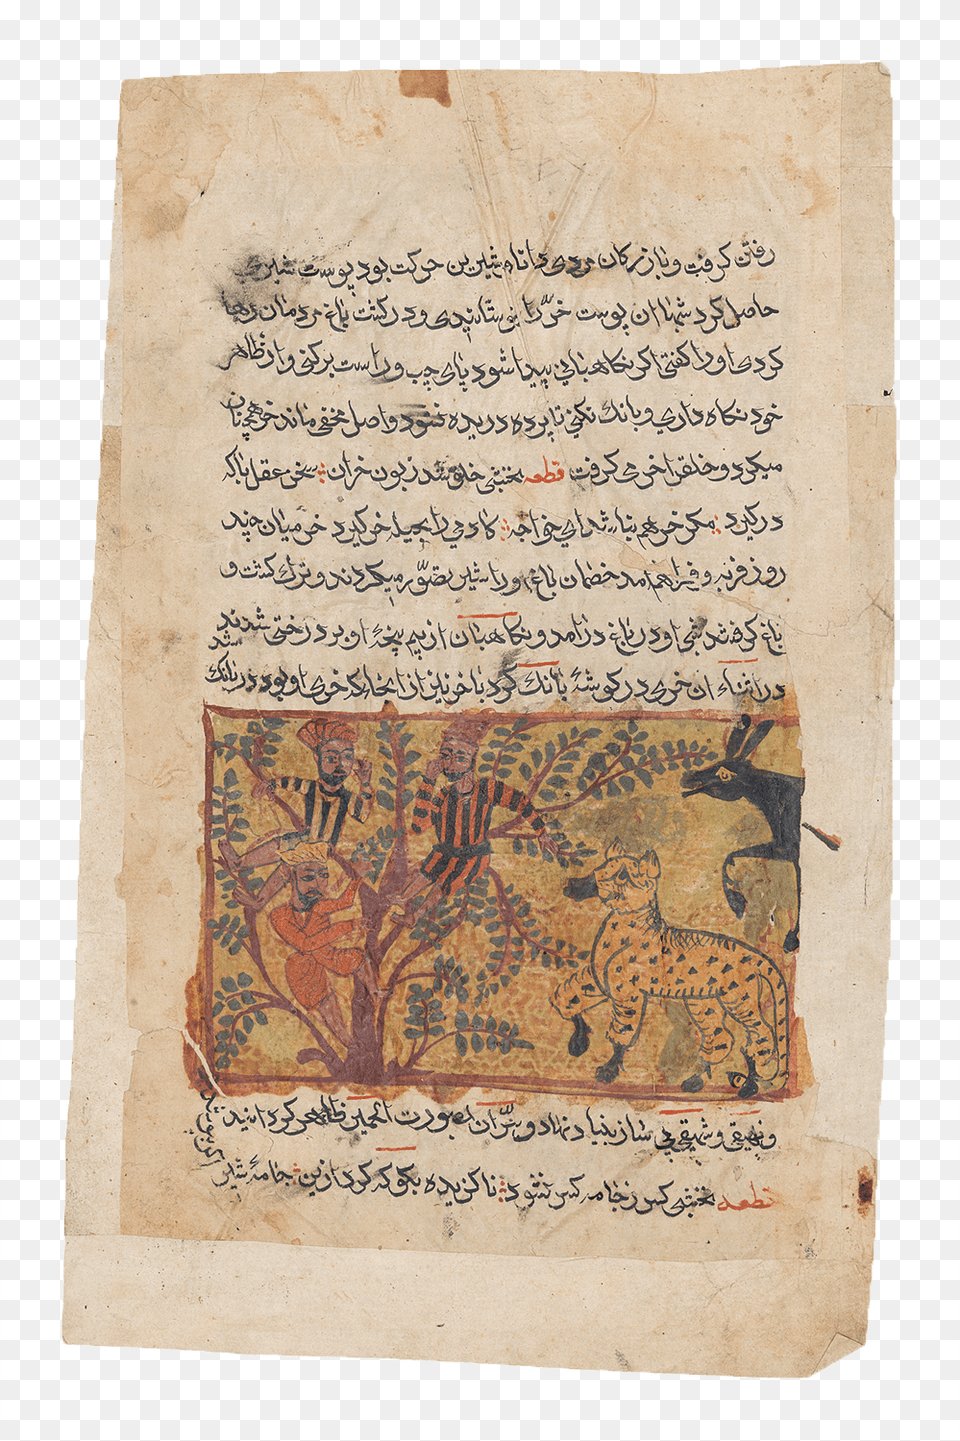 رفتن گرفت و بازرگان مردی دانا و شیرین حرکت بود پوست شیری
حاصل کرد شبها ان پوست خر را پوشانیدی و در کشت باغ مردمان رها
کردی او را گفتی اگر نکاهبانی پیدا شود پای چپ و راست برکنی و از ظاهر
خود نکاه داری و بانک نکنی تا پرده دریده نشود و اصل مخفی ماند خر همچنان
میکرد و خلق اخر می گرفت قطعه نخشبی خلق شد زبون خران سخن عقل با که
در گیرد مکر خر هم بناشد ای خواجه کادمی را بحیله خر گیرد خر میان چند
روز فربه و فراهم امد خصمان باغ او را شیر تصور میکردند و ترک کشت و
باغ گرفته شبی او در باغ درامد و نکاهبان از بیم پنجه او بر درختی شدند
در اثناء ان خری در گوشه بانک کرد با خر نیز از انجا که خری او بود در بانک شد
و نهیقی و شهیقی بی ساز بنیاد نهاد و سر ان بصورت انجمین ظاهر گردانید
قطعه نخشبی کس ز جامه کس نشود ناگزیده بکو که کرد ازین جامهٔ شیر